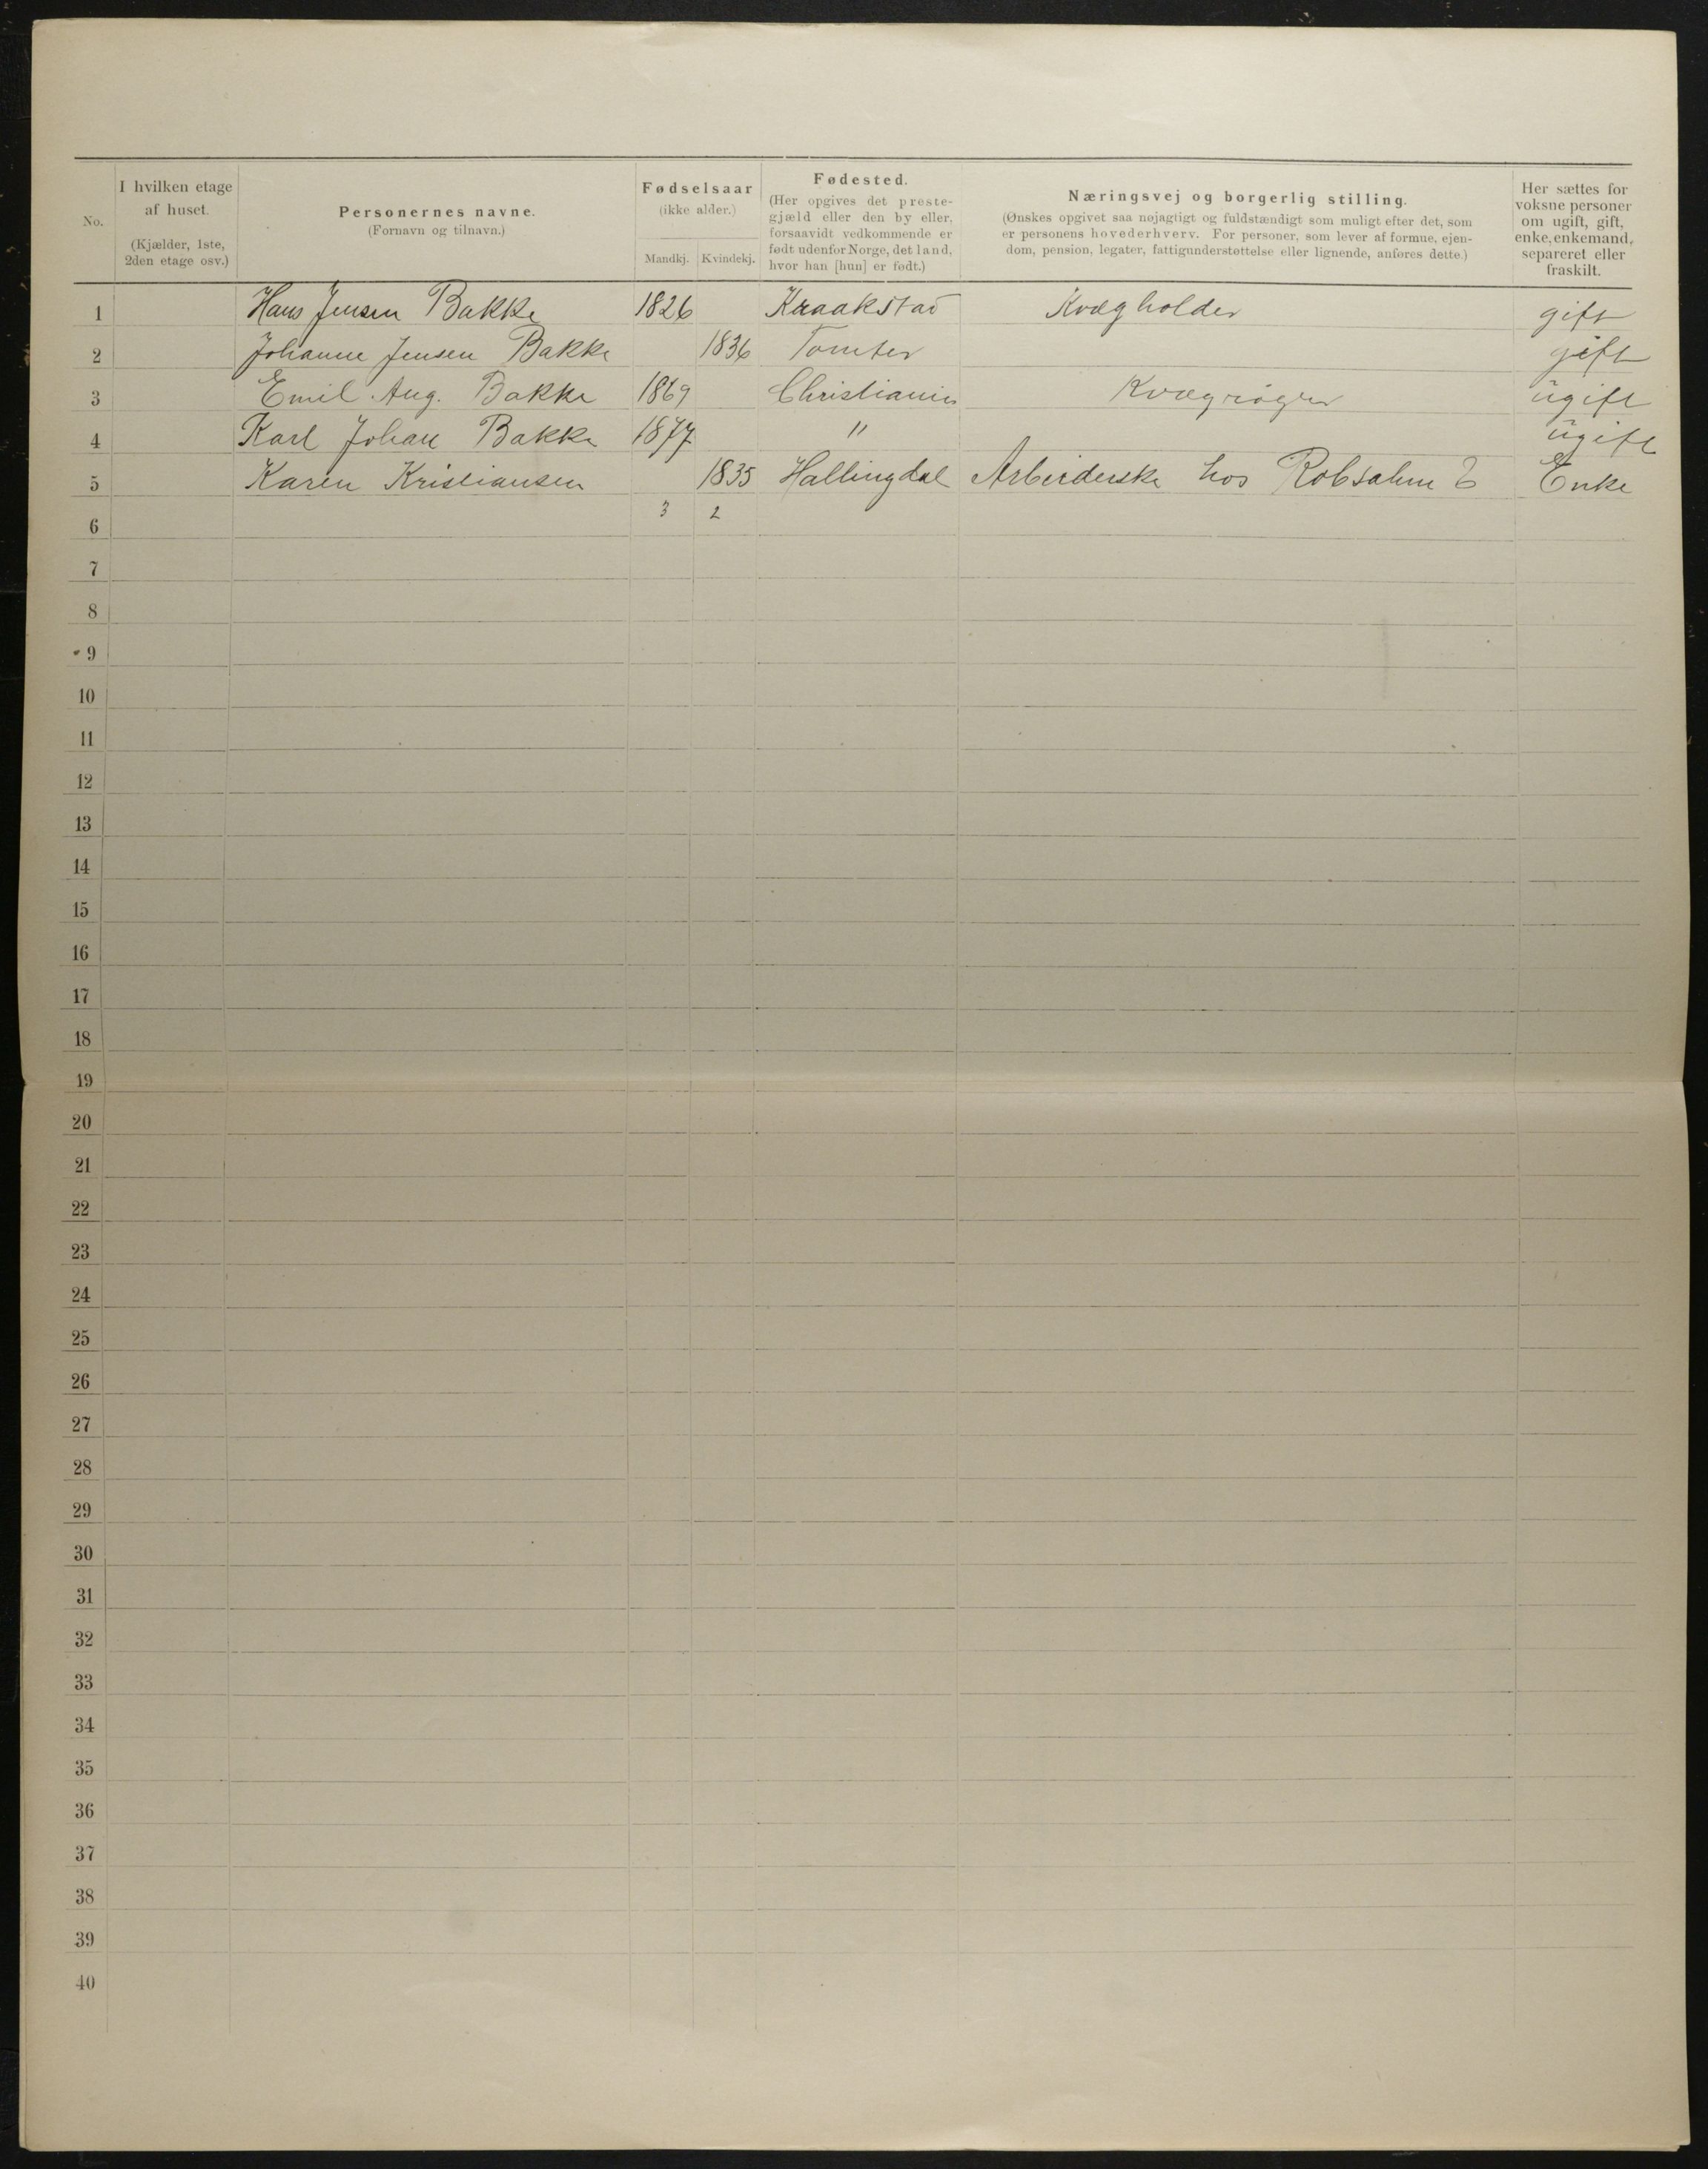 No.
I hvilken etage af huset.
(Kjælder, 1ste, 2den etage osv.)
Personernes navne.
(Fornavn og tilnavn.)
Fødselsaar
(ikke alder.)
Mandkj. Kvindekj.
Fødested.
(Her opgives det preste-
gjæld eller den by eller,
forsaavidt vedkommende er
født udenfor Norge, det land,
hvor han [hun] er født.)
Næringsvej og borgerlig stilling.
(Ønskes opgivet saa nøjagtigt og fuldstændigt som muligt efter det, som
er personens hovederhverv. For personer, som lever af formue, ejen-
dom, pension, legater, fattigunderstøttelse eller lignende, anføres dette.)
Her sættes for
voksne personer
om ugift, gift,
enke, enkemand,
separeret eller
fraskilt.
1 Hans Jensen Bakke 1826 Kraakstad Kvægholder gift
2 Johanne Jensen Bakke 1836 Tomter gift
3 Emil Aug. Bakke 1869 Christiania Kvægrøgter ugift
4 Karl Johan Bakke 1877 " ugift
5 Karen Kristiansen 1835 Hallingdal Arbeiderske hos Robsahm Enke
6 3 2
7
8
9
10
11
12
13
14
15
16
17
18
19
20
21
22
23
24
25
26
27
28
29
30
31
32
33
34
35
36
37
38
39
40